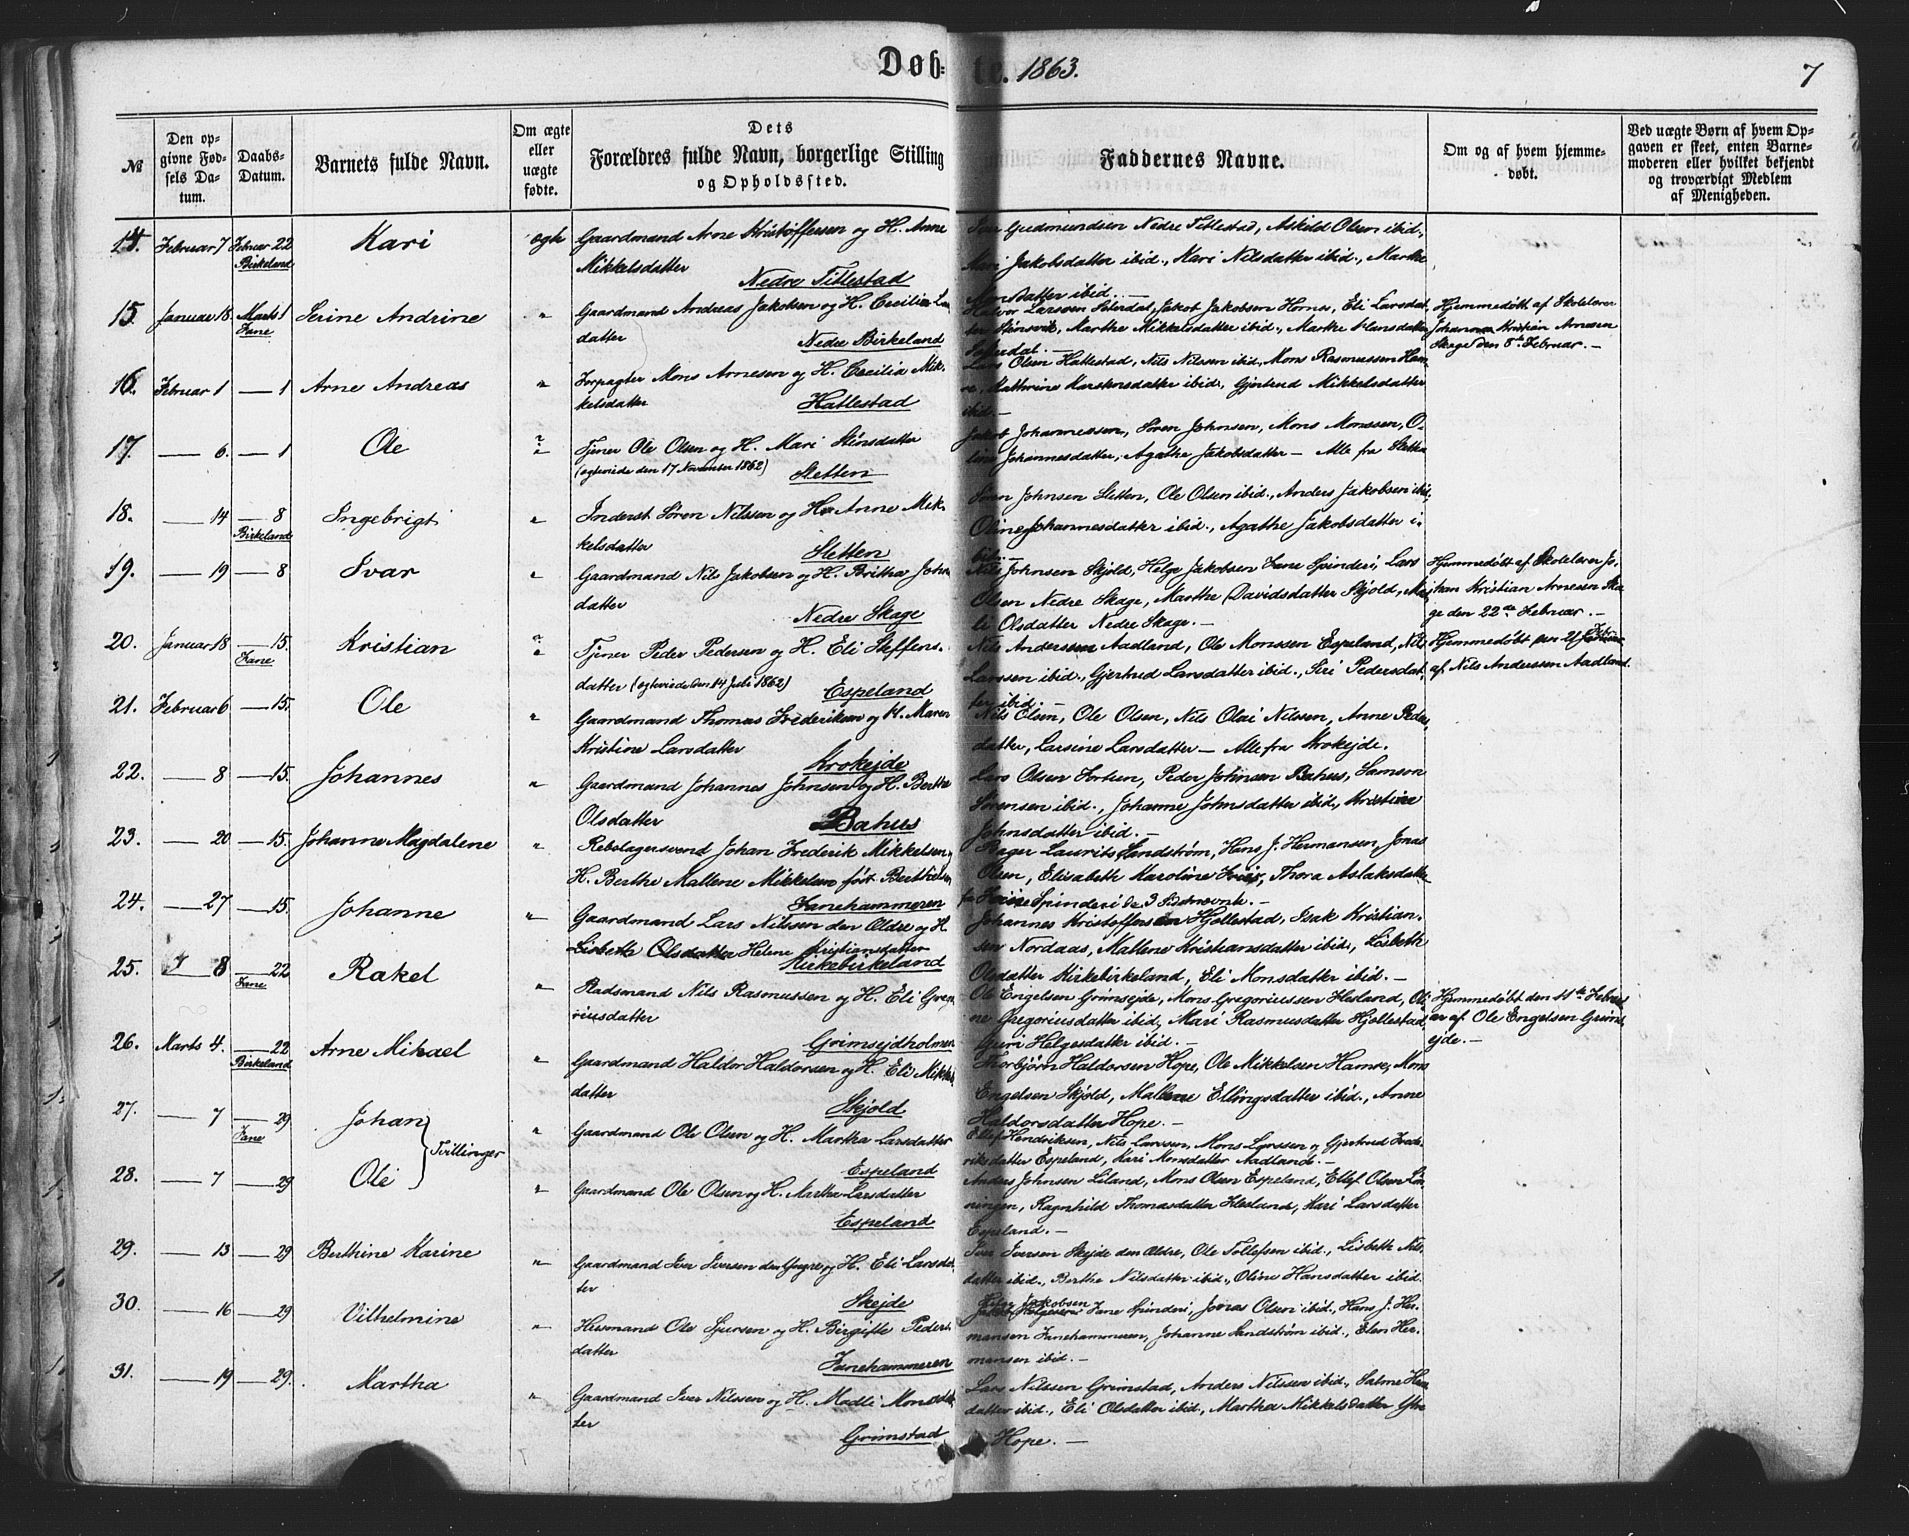 Døbte. 1863. 7
№ Den opgivne Fødsels Datum. Daabs-Datum. Barnets fulde Navn. Om ægte eller uægte fødte. Dets Forældres fulde Navn, borgerlige Stilling og Opholdssted. Faddernes Navne. Om og af hvem hjemmedøbt. Ved uægte Børn af hvem Opgaven er skeet, enten Barnemoderen eller hvilket bekjendt og troværdigt Medlem af Menigheden.
14. Februar 7 Februar 22 Birkeland Kari ægte Gaardmand Arne Kristoffersen og H. Anne
Mikkelsdatter Nedre Tittestad
Iver Gudmundsen Nedre Tittestad, Askild Olsen ibid.,
Kari Jakobsdatter ibid., Kari Nilsdatter ibid., Marthe
Monsdatter ibid. —
15. Januar 18. Marts 1 Fane Serine Andrine " Gaardmand Andreas Jakobsen og H. Cecilia Lar
datter Nedre Birkeland
Halvor Larssen Seterdal, Jakob Jakobsen Hornes, Eli Larsdat,
ter Stensvik, Marthe Mikkelsdatter ibid., Marthe Hansdatter
Seterdal. —
Hjemmedøbt af Skolelærer
Johannes Kristian Arnesen
Skage den 8de Februar. —
16. Februar 1 — 1 Arne Andreas " Forpagter Mons Arnesen og H. Cecilia Mik,
kelsdatter Hattestad
Lars Olsen Hattestad, Nils Nilssen ibid., Mons Rasmussen Ham
re, Kathrine Karstensdatter ibid., Gjertrud Mikkelsdatter
ibid. —
17. — 6. — 1 Ole " Tjener Ole Olsen og H. Mari Stensdatter
(ægteviede den 17 November 1862) Sletten
Jakob Johannessen, Søren Johnsen, Mons Monssen, O,
line Johannesdatter, Agathe Jakobsdatter — Alle fra Sletten
18. — 14 — 8 Birkeland Ingebrigt " Inderst Søren Nilssen og H. Anne Mik,
kelsdatter Sletten
Søren Johnsen Sletten, Ole Olsen ibid., Anders Jakobsen ibid,
Oline Johannesdatter ibid., Agathe Jakobsdatter i,
bid. —
19. — 19 — 8 Ivar " Gaardmand Nils Jakobsen og H. Britha John
datter Nedre Skage
Nils Johnsen Skjold, Helge Jakobsen Fane Spinderi, Lars
Olsen Nedre Skage, Marthe Davidsdatter Skjold, Ma
li Olsdatter Nedre Skage. —
Hjemmedøbt af Skolelærer Jo,
han Kristian Arnesen Ska
ge den 22de Februar. —
20. Januar 18 — 15. Fane Kristian " Tjener Peder Pedersen og H. Eli Steffens,
datter (ægteviede den 14 Juli 1862) Espeland
Nils Anderssen Aadland, Ole Monssen Espeland, Nils
Larssen ibid., Gjertrud Larsdatter ibid., Siri Pedersdat,
ter ibid. —
Hjemmedøbt den 21 Febr
af Nils Anderssen Aadland.
21. Februar 6 — 15. Ole " Gaardmand Thomas Frederiksen og H. Maren
Kristine Larsdatter Krokejde
Nils Olsen, Ole Olsen, Nils Olai Nilssen, Anne Peders
datter, Larsine Larsdatter — Alle fra Krokejde.
22. — 8 — 15. Johannes " Gaardmand Johannes Johnsen og H. Berthe
Olsdatter Bahus
Lars Olsen Fortun, Peder Johnsen Bahus, Samson
Sørensen ibid., Johanne Johnsdatter ibid., Kristine
Johnsdatter ibid. —
23. — 20 — 15. Johanne Magdalene " Rebslagersvend Johan Frederik Mikkelsen og
H. Berthe Mallene Mikkelsen født Berthelsen
Fanehammeren
Bager Laurits Sandstrøm, Hans J. Hermansen, Jonas
Olsen, Elisabeth Karoline Friis, Thora Aslaksdatter
fra Fane Spinderi de 3 Sidstnævnte. —
24. — 27 — 15. Johanne " Gaardmand Lars Nilssen den Ældre og H.
Lisbeth Olsdatter Helene Kristiansdatter
Kirkebirkeland
Johannes Kristoffersen Hjellestad, Isak Kristian,
sen Nordaas, Mallene Kristiansdatter ibid., Lisbeth
Olsdatter Kirkebirkeland, Eli Monsdatter ibid. —
25. 8 — 22 Fane Rakel " Radsmand Nils Rasmussen og H. Eli Grego
riusdatter Grimsejdholmen
Ole Engelsen Grimsejde, Mons Gregoriussen Hesland, Oli
ne Gregoriusdatter ibid, Mari Rasmusdatter Hjellestad,
Guri Helgesdatter ibid. —
Hjemmedøbt den 11te Febru
ar af Ole Engelsen Grims
ejde. —
26. Marts 4. — 22 Birkeland Arne Mikael " Gaardmand Haldor Haldorsen og H. Eli Mikkels
datter Skjold
Thorbjørn Haldorsen Hope, Ole Mikkelsen Hamre, Mons
Engelsen Skjold, Mallene Ellingsdatter ibid., Anne
Haldorsdatter Hope. —
27. — 7 — 29 Fane Johan } Tvillinger " Gaardmand Ole Olsen og H. Martha Larsdatter
Espeland
Ellef Hendriksen, Nils Larssen, Mons Larssen og Gjertrud Frede,
riksdatter Espeland, Kari Monsdatter Aadland. —
28. — 7 — 29 Ole " Gaardmand Ole Olsen og H. Martha Larsdatter
Espeland
Anders Johnsen Liland, Mons Olsen Espeland, Ellef Olsen Lø,
ningen, Ragnhild Thomasdatter Hesland, Kari Larsdatter
Espeland. —
29. — 13 — 29 Berthine Karine " Gaardmand Iver Iversen den Yngre og H. Eli Larsdat
ter Skejde
Iver Iversen Skejde den Ældre, Ole Tollefsen ibid., Lisbeth Nils,
datter ibid., Berthe Nilsdatter ibid., Oline Hansdatter ibid.
30. — 16 — 29 Vilhelmine " Husmand Ole Sjursen og H. Birgitte Peders,
datter Fanehammeren
Helge Jakobsen
Fane Spinderi, Jonas Olsen ibid., Hans J. Her,
mansen Fanehammeren, Johanne Sandstrøm ibid., Elen Her,
mansen ibid. —
31. — 19 — 29. Martha " Gaardmand Iver Nilssen og H. Madli Monsdat
ter Grimstad
Lars Nilssen Grimstad, Anders Nilssen ibid., Salme Han
datter ibid., Eli Olsdatter ibid., Martha Mikkelsdatter Ytre
Hope. —